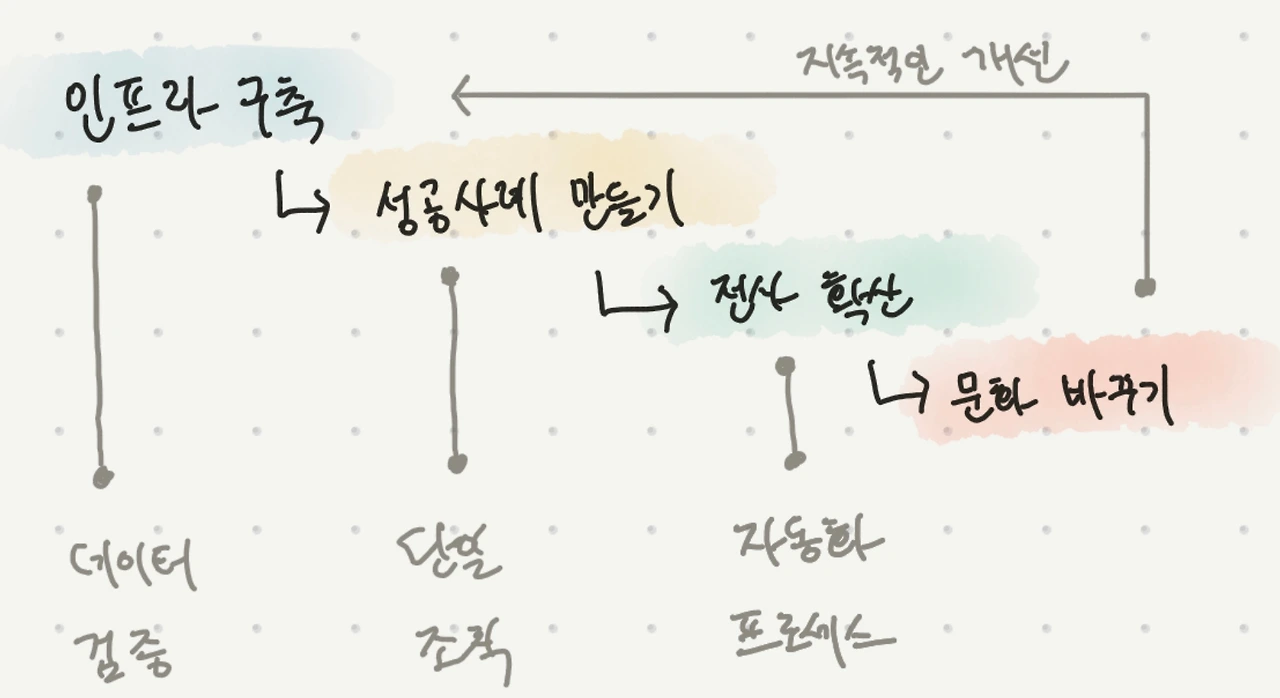 지속적인 개선
인프라 구축
성공사례 만들기
전사 확산
문화 바꾸기
데이터
검증
단일
조직
자동화
프로세스